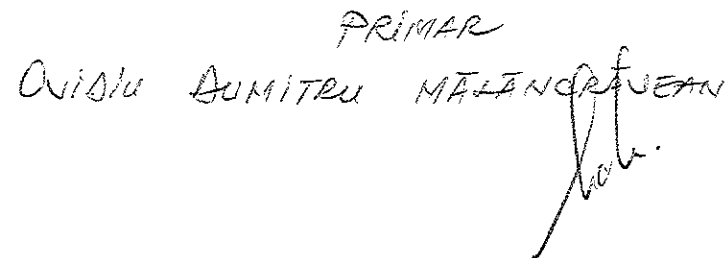 PRIMAR
OVIDIU DUMITRU MĂLĂNCRĂVEAN